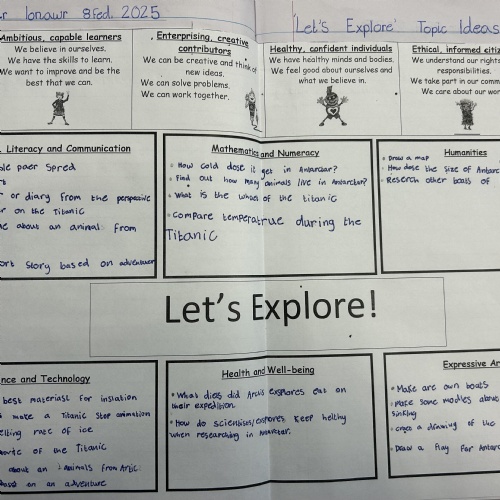 Ionawr 8fed. 2025
'Let's Explore' Topic Ideas
Ambitious, capable learners
We believe in ourselves.
We have the skills to learn.
We want to improve and be the
best that we can.
Enterprising, creative
contributors
We can be creative and think of
new ideas.
We can solve problems.
We can work together.
Healthy, confident individuals
We have healthy minds and bodies.
We feel good about ourselves and
what we believe in.
Ethical, informed citiz
We understand our rights
responsibilities.
We take part in our comm
We care about our wor
Literacy and Communication
paer Spred
or diary from the perspective
on the Titanic
about an animal from
Story based on adventuer
Mathematics and Numeracy
How cold dose it get in Antarctar?
Find out how many animals live in Antarctar?
What is the of the titanic
Compare temperatrue during the
Titanic
Humanities
Draw a map
How dose the size of Antarc
Reserch other boats of
Let's Explore!
nce and Technology
best materiast for inslation
make a Titanic Stop animation
elting rate of ice
of the Titanic
about an animals from Artic.
Based on an adventure
Health and Well-being
What diets did Arctis explores eat on
their expedition.
How do scientises/exporers keep helthy
when researching in Antarctar.
Expressive Ar
Make are own boats
Make some modles about
sinking
a drawing of the
Draw a flag for Antarc